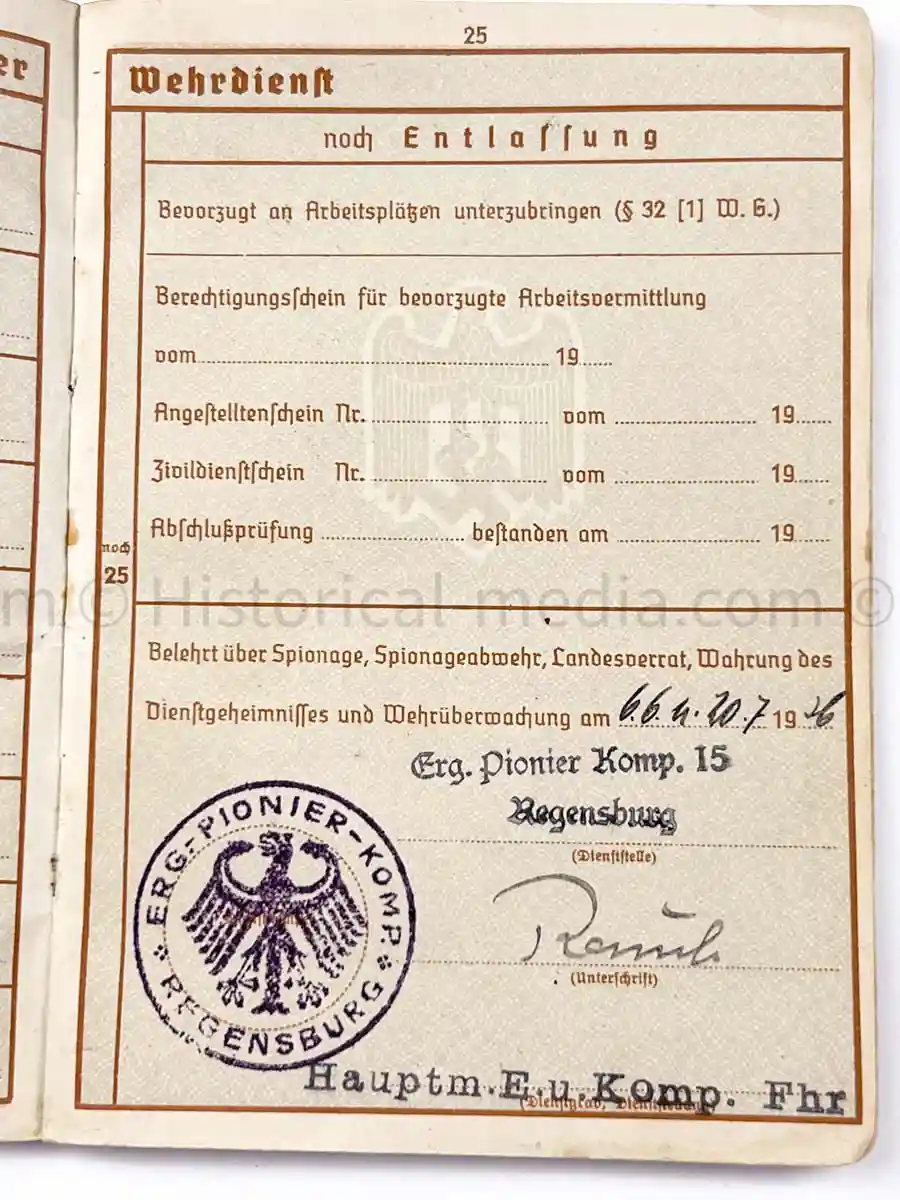 er
25
Wehrdienst
noch Entlassung
Bevorzugt an Arbeitsplätzen unterzubringen (§ 32 [1] W. G.)
Berechtigungsschein für bevorzugte Arbeitsvermittlung
vom 19
Angestelltenschein Nr. vom 19
Zivildienstschein Nr. vom 19
Abschlußprüfung bestanden am 19
noch
25
m © Historical-media.com ©
Belehrt über Spionage, Spionageabwehr, Landesverrat, Wahrung des
Dienstgeheimnisses und Wehrüberwachung am 6.6. u. 20.7 1936
Erg. Pionier Komp. 15
Regensburg
(Dienststelle)
ERG.-PIONIER-KOMP.
REGENSBURG
(Unterschrift)
Hauptm. E. u Komp. Fhr